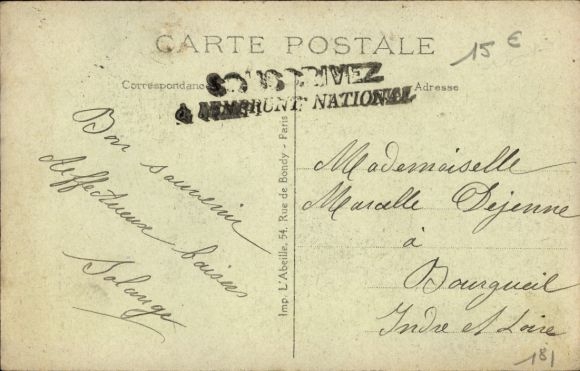 CARTE POSTALE
15 €
Correspondance
Adresse
SOUSCRIVEZ
à L'EMPRUNT NATIONAL
Bon souvenir
Affectueux baisers
Solange
Imp. L'Abeille, 54, Rue de Bondy - Paris
Mademoiselle
Marcelle Déjenne
à
Bourgueil
Indre et Loire
181